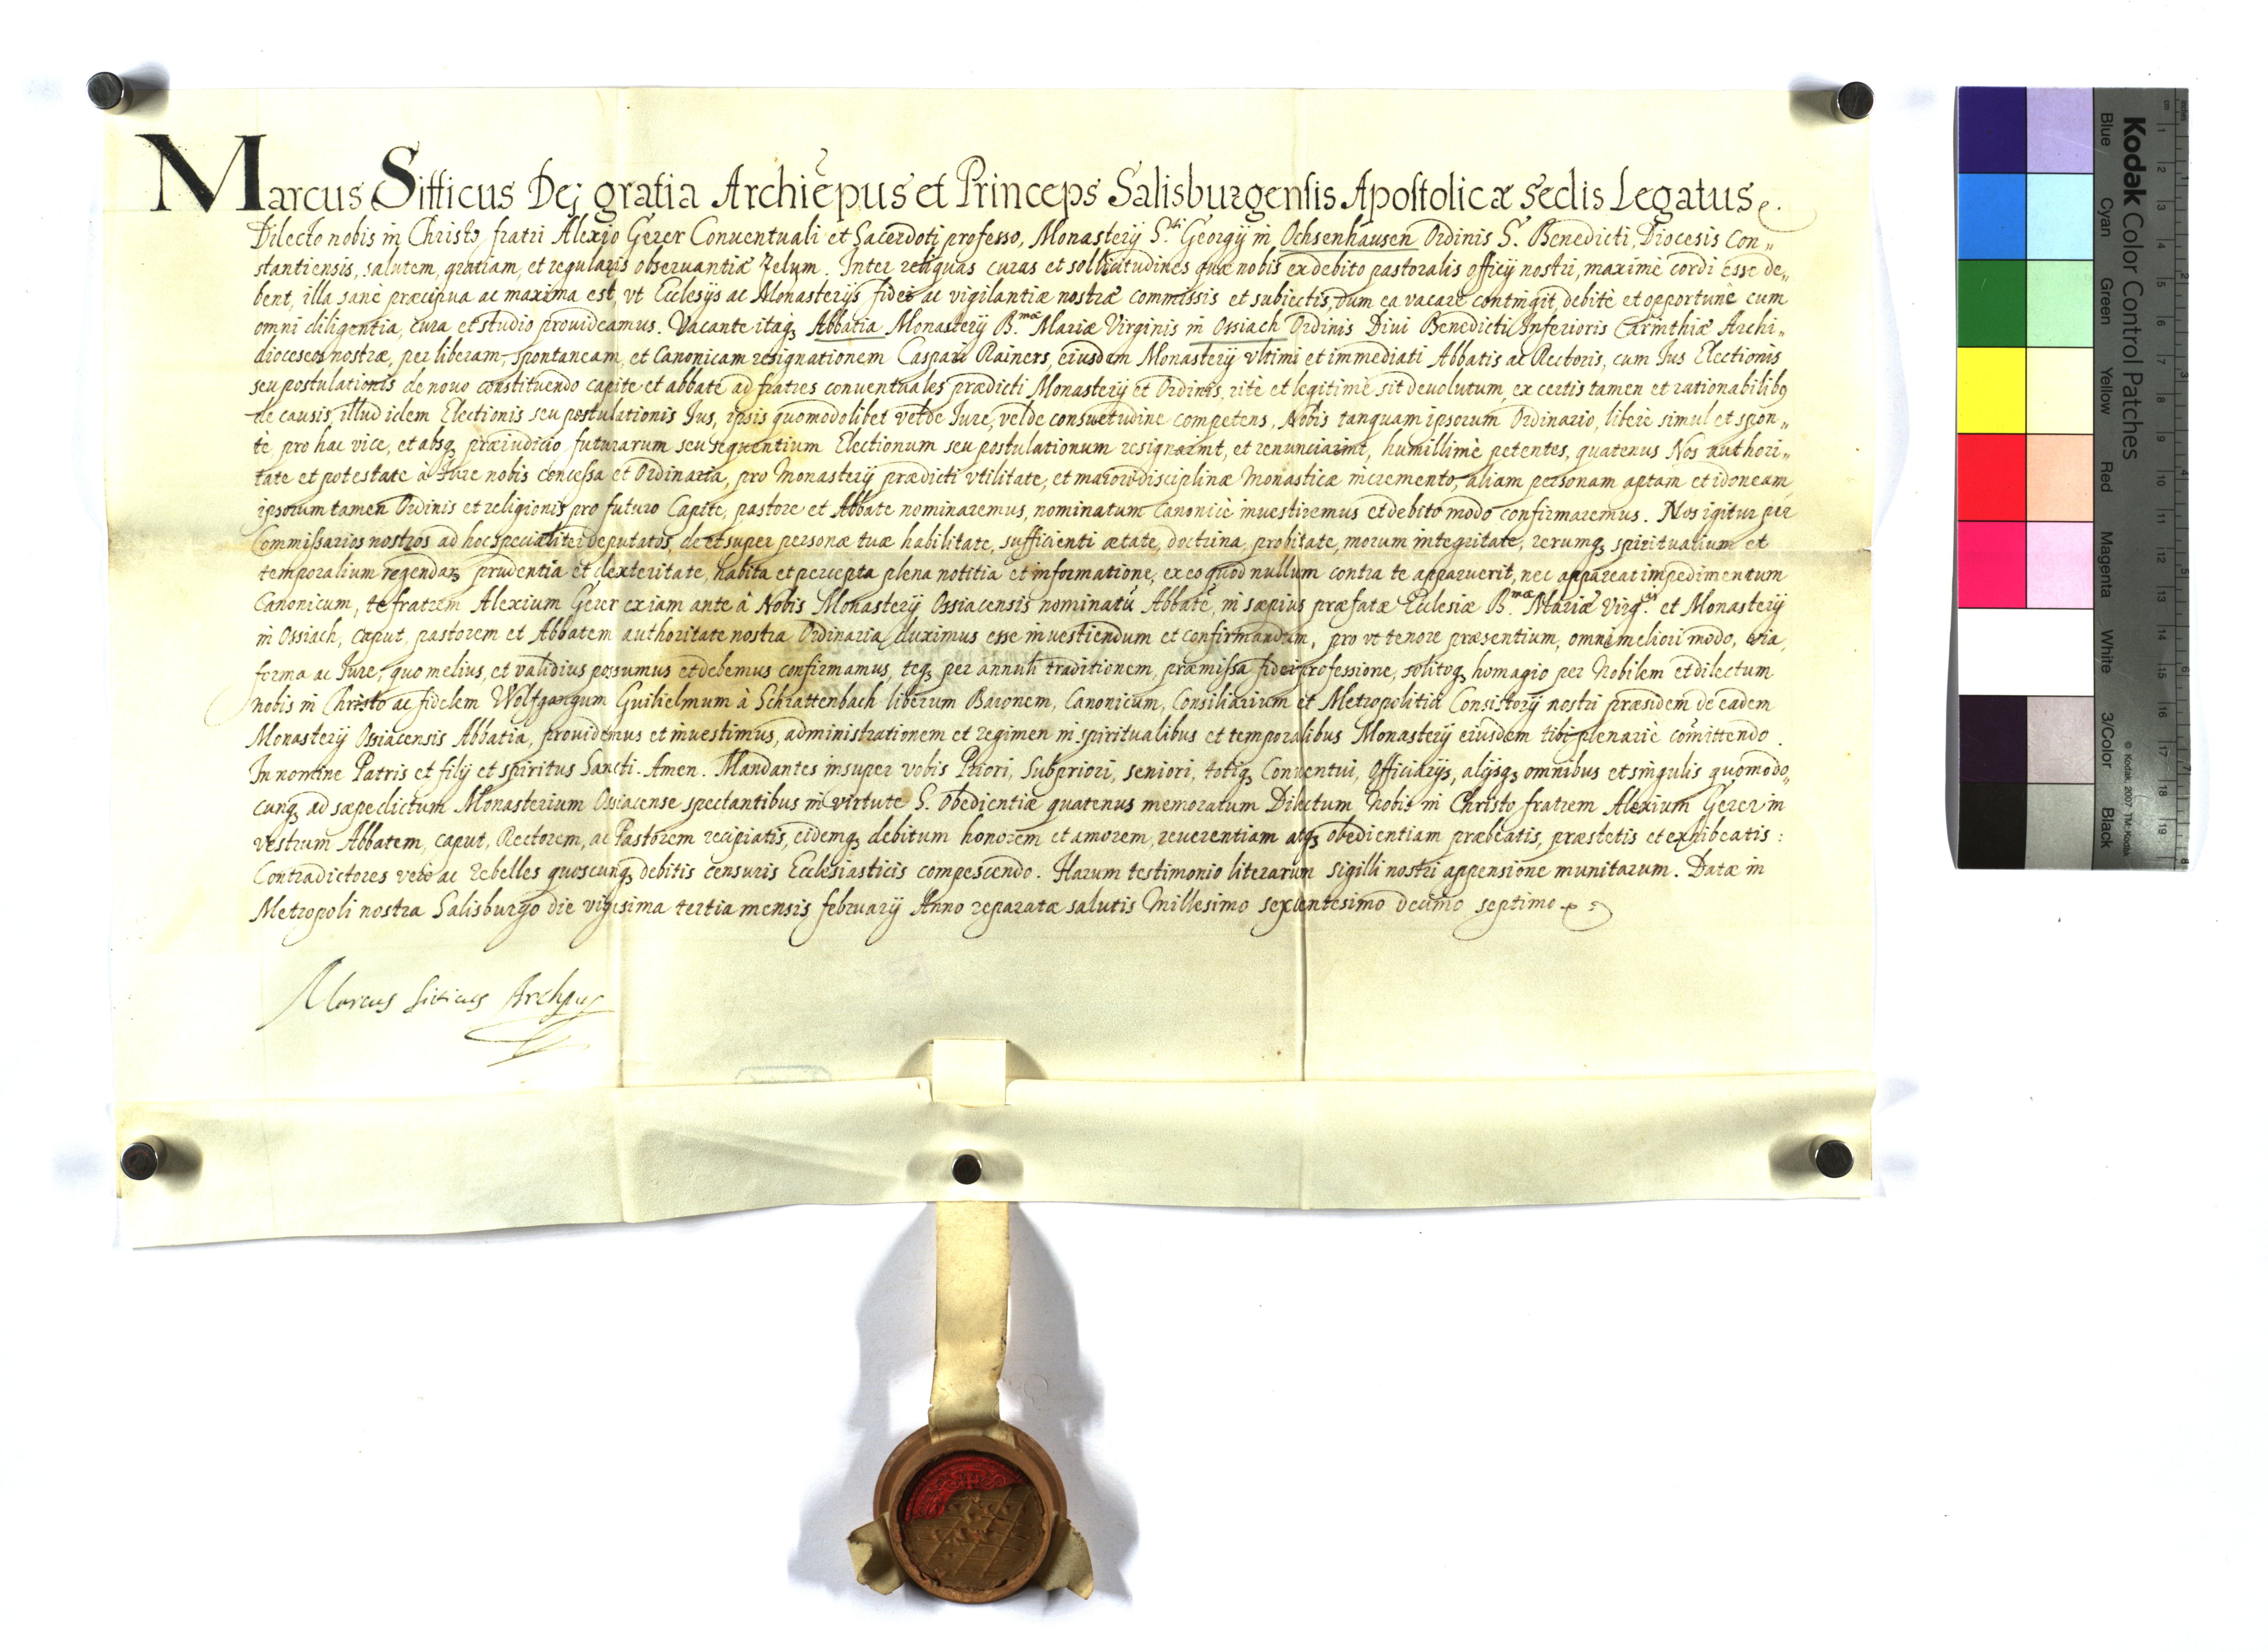 Marcus Sitticus Dej gratia Archiepus et Princeps Salisburgensis Apostolicæ sedis Legatus.
Dilecto nobis in Christo fratri Alexio Gerer Conuentuali et Sacerdoti professo, Monasterij S.ti Georgij in Ochsenhausen Ordinis S. Benedicti, Diocesis Con„
stantiensis, salutem, gratiam, et regularis obseruantiæ Zelum. Inter reliquas curas et sollicitudines quæ nobis ex debito pastoralis officij nostri, maximè cordi esse de„
bent, illa sanè præcipua ac maxima est, vt Ecclesijs ac Monasterijs fidei ac vigilantiæ nostræ commissis et subiectis, dum ea vacare contingit, debitè et opportunè cum
omni diligentia, cura et studio prouideamus. Vacante itaq, Abbatia Monasterij B.mæ Mariæ Virginis in Ossiach Ordinis Diui Benedicti Inferioris Carinthiæ Archi„
dioceseos nostræ, per liberam, spontaneam, et Canonicam resignationem Caspari Rainers, eiusdem Monasterij vltimi et immediati Abbatis ac Rectoris, cum Jus Electionis
seu postulationis de nouo constituendo capite et abbate ad fratres conuentuales prædicti Monasterij et Ordinis, ritè et legitimè sit deuolutum, ex certis tamen et rationabilibq
de causis, illud idem Electionis seu postulationis Jus, ipsis quomodolibet vel de Jure, vel de consuetudine competens, Nobis tanquam ipsorum Ordinario, liberè simul et spon„
tè, pro hac vice, et absq, præiudicio futurarum seu sequentium Electionum seu postulationum resignarint, et renunciarint, humillimè petentes, quatenus Nos authori„
tate et potestate à Jure nobis concessa et Ordinaria, pro Monasterij prædicti vtilitate, et maiori disciplinæ Monasticæ incremento, aliam personam aptam et idoneam,
ipsorum tamen Ordinis et religionis pro futuro Capite, pastore et Abbate nominaremus, nominatum Canonicè inuestiremus et debito modo confirmaremus. Nos igitur per
Commissarios nostros ad hoc specialiter deputatos, de et super personæ tuæ habilitate, sufficienti ætate, doctrina, probitate, morum integritate, rerumq, spiritualium et
temporalium regendar, prudentia et dexteritate, habita et percepta plena notitia et informatione, ex eo quod nullum contra te apparuerit, nec appareat impedimentum
Canonicum, te fratrem Alexium Gerer ex iam ante à Nobis Monasterij Ossiacensis nominatū Abbatē, in sæpius præfatæ Ecclesiæ B.mæ Mariæ Virg.is et Monasterij
in Ossiach, caput, pastorem et Abbatem authoritate nostra Ordinaria duximus esse inuestiendum et confirmandum, pro vt tenore præsentium, omni meliori modo, via,
forma ac Jure, quo melius, et validius possumus et debemus confirmamus, teq, per annuli traditionem, præmissa fidei professione, solitoq, homagio per Nobilem et dilectum
nobis in Christo ac fidelem Wolfgangum Guilielmum à Schrattenbach liberum Baronem, Canonicum, Consiliarium et Metropolitici Consistorij nostri præsidem de eadem
Monasterij Ossiacensis Abbatia, prouidemus et inuestimus, administrationem et regimen in spiritualibus et temporalibus Monasterij eiusdem tibi plenariè comittendo.
In nomine Patris et filij et spiritus Sancti. Amen. Mandantes insuper vobis Priori, Subpriori, seniori, totiq, Conuentui, Officiarijs, alijsq, omnibus et singulis quomodo„
cunq, ad sæpedictum Monasterium Ossiacense spectantibus in virtute S. obedientiæ quatenus memoratum Dilectum Nobis in Christo fratrem Alexium Gerer in
vestrum Abbatem, caput, Rectorem, ac Pastorem recipiatis, eidemq, debitum honorem et amorem, reuerentiam atq, obedientiam præbeatis, præstetis et exhibeatis:
Contradictores verò ac rebelles quoscunq, debitis censuris Ecclesiasticis compescendo. Harum testimonio literarum sigilli nostri appensione munitarum. Datæ in
Metropoli nostra Salisburgo die vigesima tertia mensis februarij Anno reparatæ salutis Millesimo sexcentesimo decimo septimo
Marcus Sitticus Archpus
Kodak Color Control Patches
Blue Cyan Green Yellow Red Magenta White 3/Color Black
© Kodak, 2007 TM: Kodak
cm 1 2 3 4 5 6 7 8 9 10 11 12 13 14 15 16 17 18 19
inches 1 2 3 4 5 6 7 8